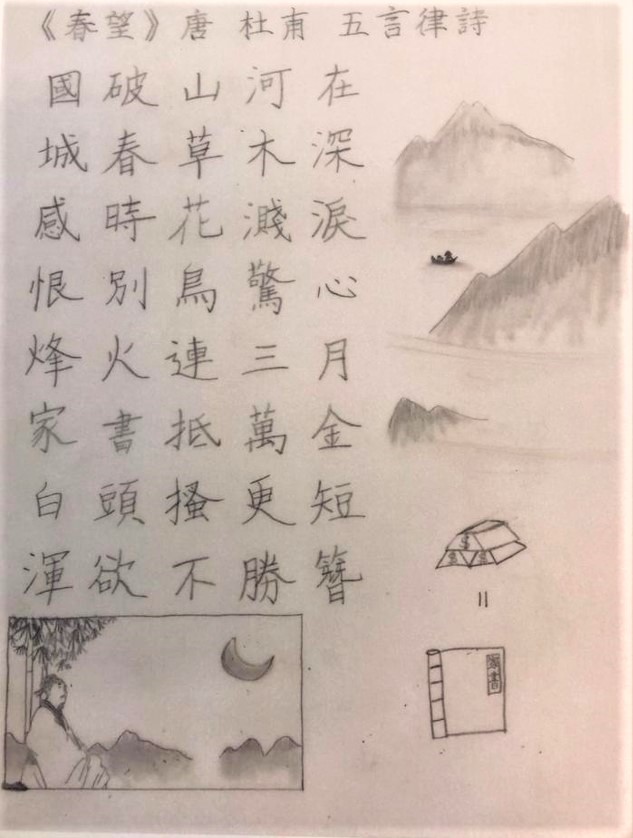 《春望》 唐 杜甫 五言律詩
國破山河在
城春草木深
感時花濺淚
恨別鳥驚心
烽火連三月
家書抵萬金
白頭搔更短
渾欲不勝簪
$ $ $
=
家書